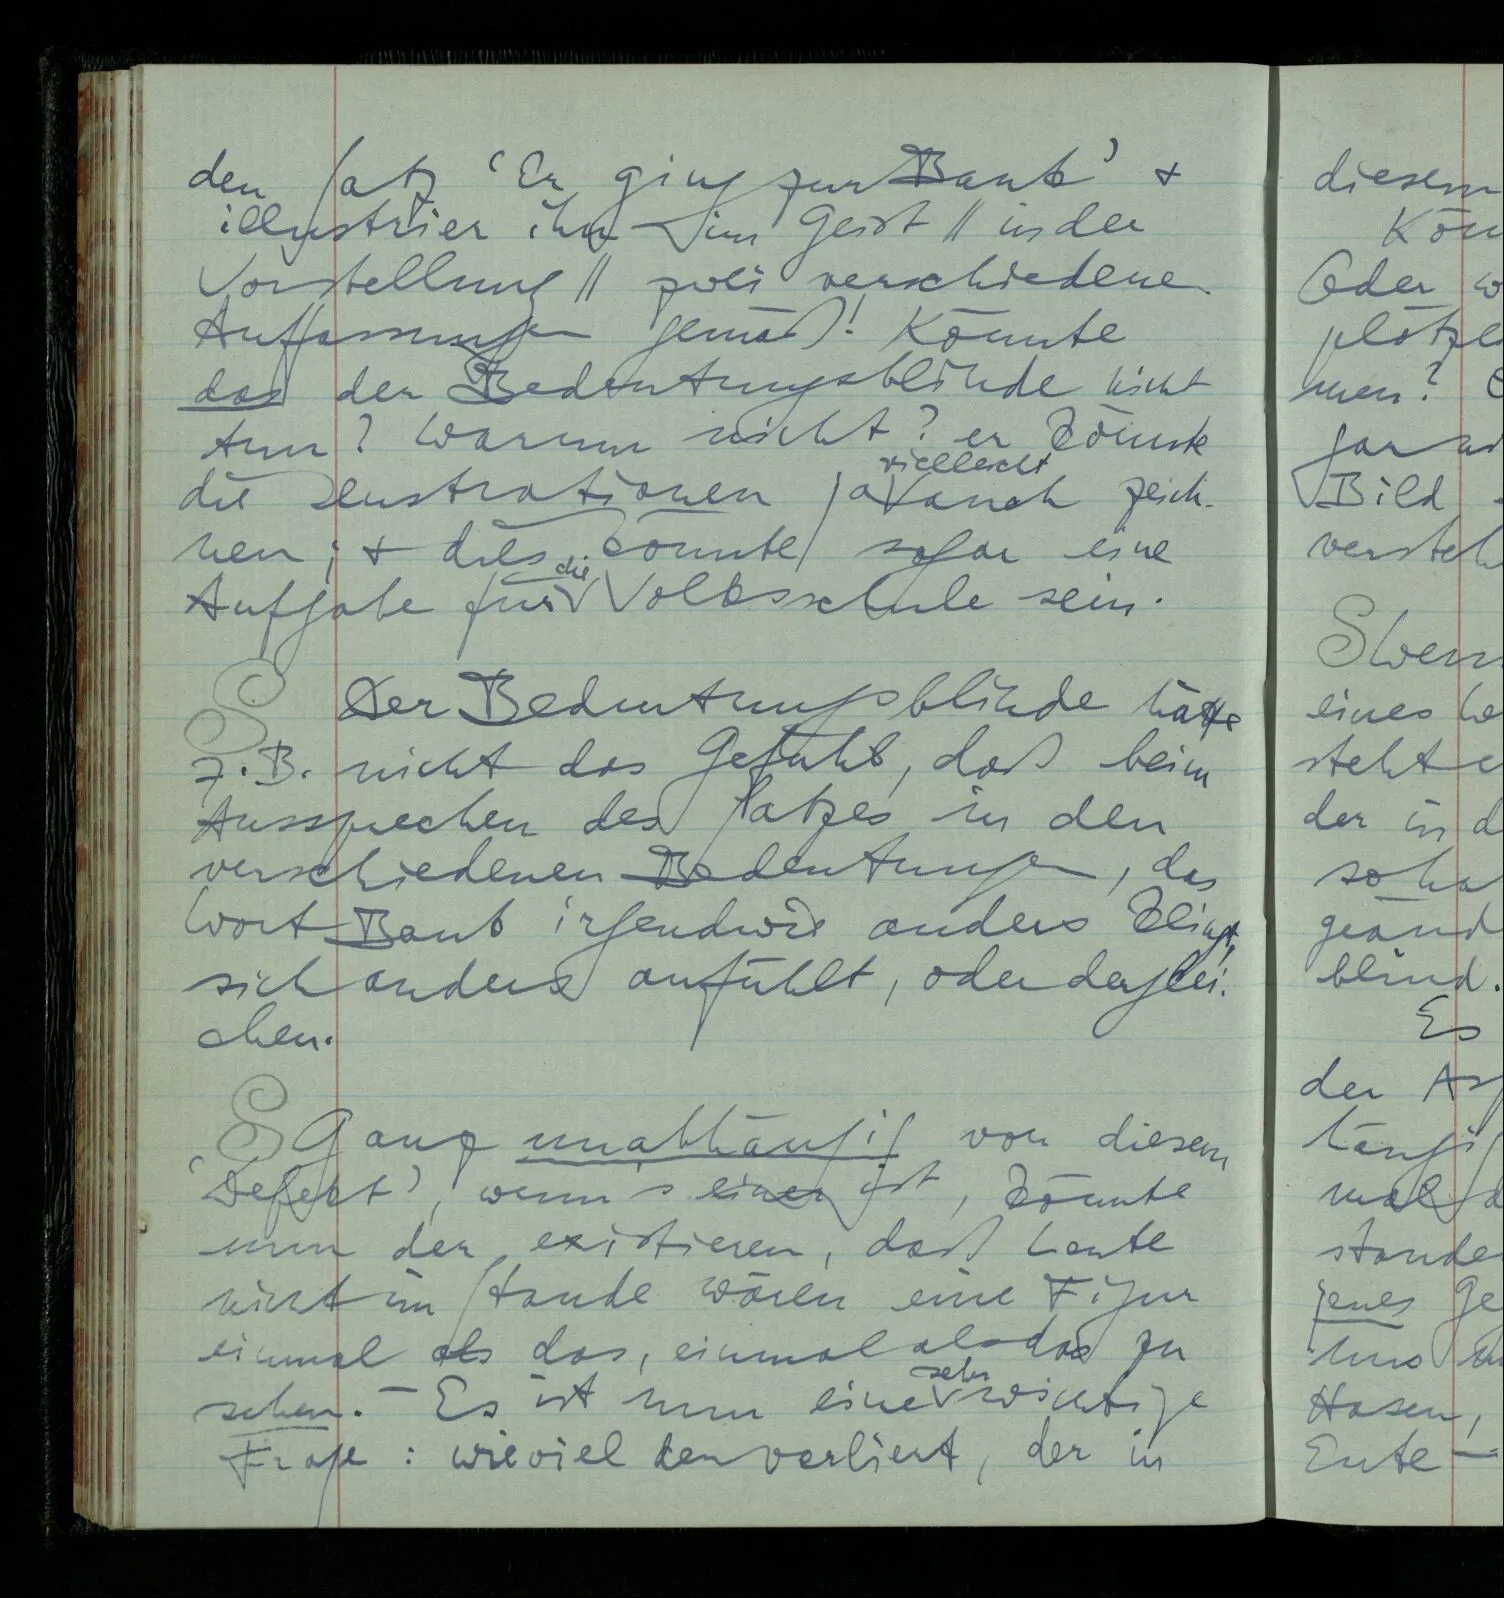 den Satz ‘Er ging zur Bank’ &
illustrier ihn im Geist || in der
Vorstellung || zwei verschiedene
Auffassungen gemäß! Könnte
das der Bedeutungsblinde nicht
tun? Warum nicht? er könnte
vielleicht
die Illustrationen ja auch zeich-
nen; & dies könnte sogar eine
die
Aufgabe für Volksschule sein.
Der Bedeutungsblinde hätte
z.B. nicht das Gefühl, daß beim
Aussprechen des Satzes in den
verschiedenen Bedeutungen, das
Wort Bank irgendwie anders klingt,
sich anders anfühlt, oder derglei-
chen.
Ganz unabhängig von diesem
‘Defekt’, wenn's einer ist, könnte
nun der existieren, daß Leute
nicht im Stande wären eine Figur
einmal als das, einmal als das zu
sehen. – Es ist nun eine sehr wichtige
Frage: wieviel der verliert, der in
diesem
Oder
men?
Bild
Wenn
eines
der in d
blind.
Es
der
jenes Ge
Hasen,
Ente –